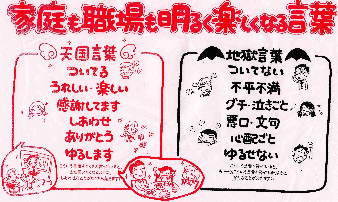 家庭も職場も明るく楽しくなる言葉
天国言葉
ついてる
うれしい・楽しい
感謝してます
しあわせ
ありがとう
ゆるします
地獄言葉
ついてない
不平不満
グチ・泣きごと
悪口・文句
心配ごと
ゆるせない